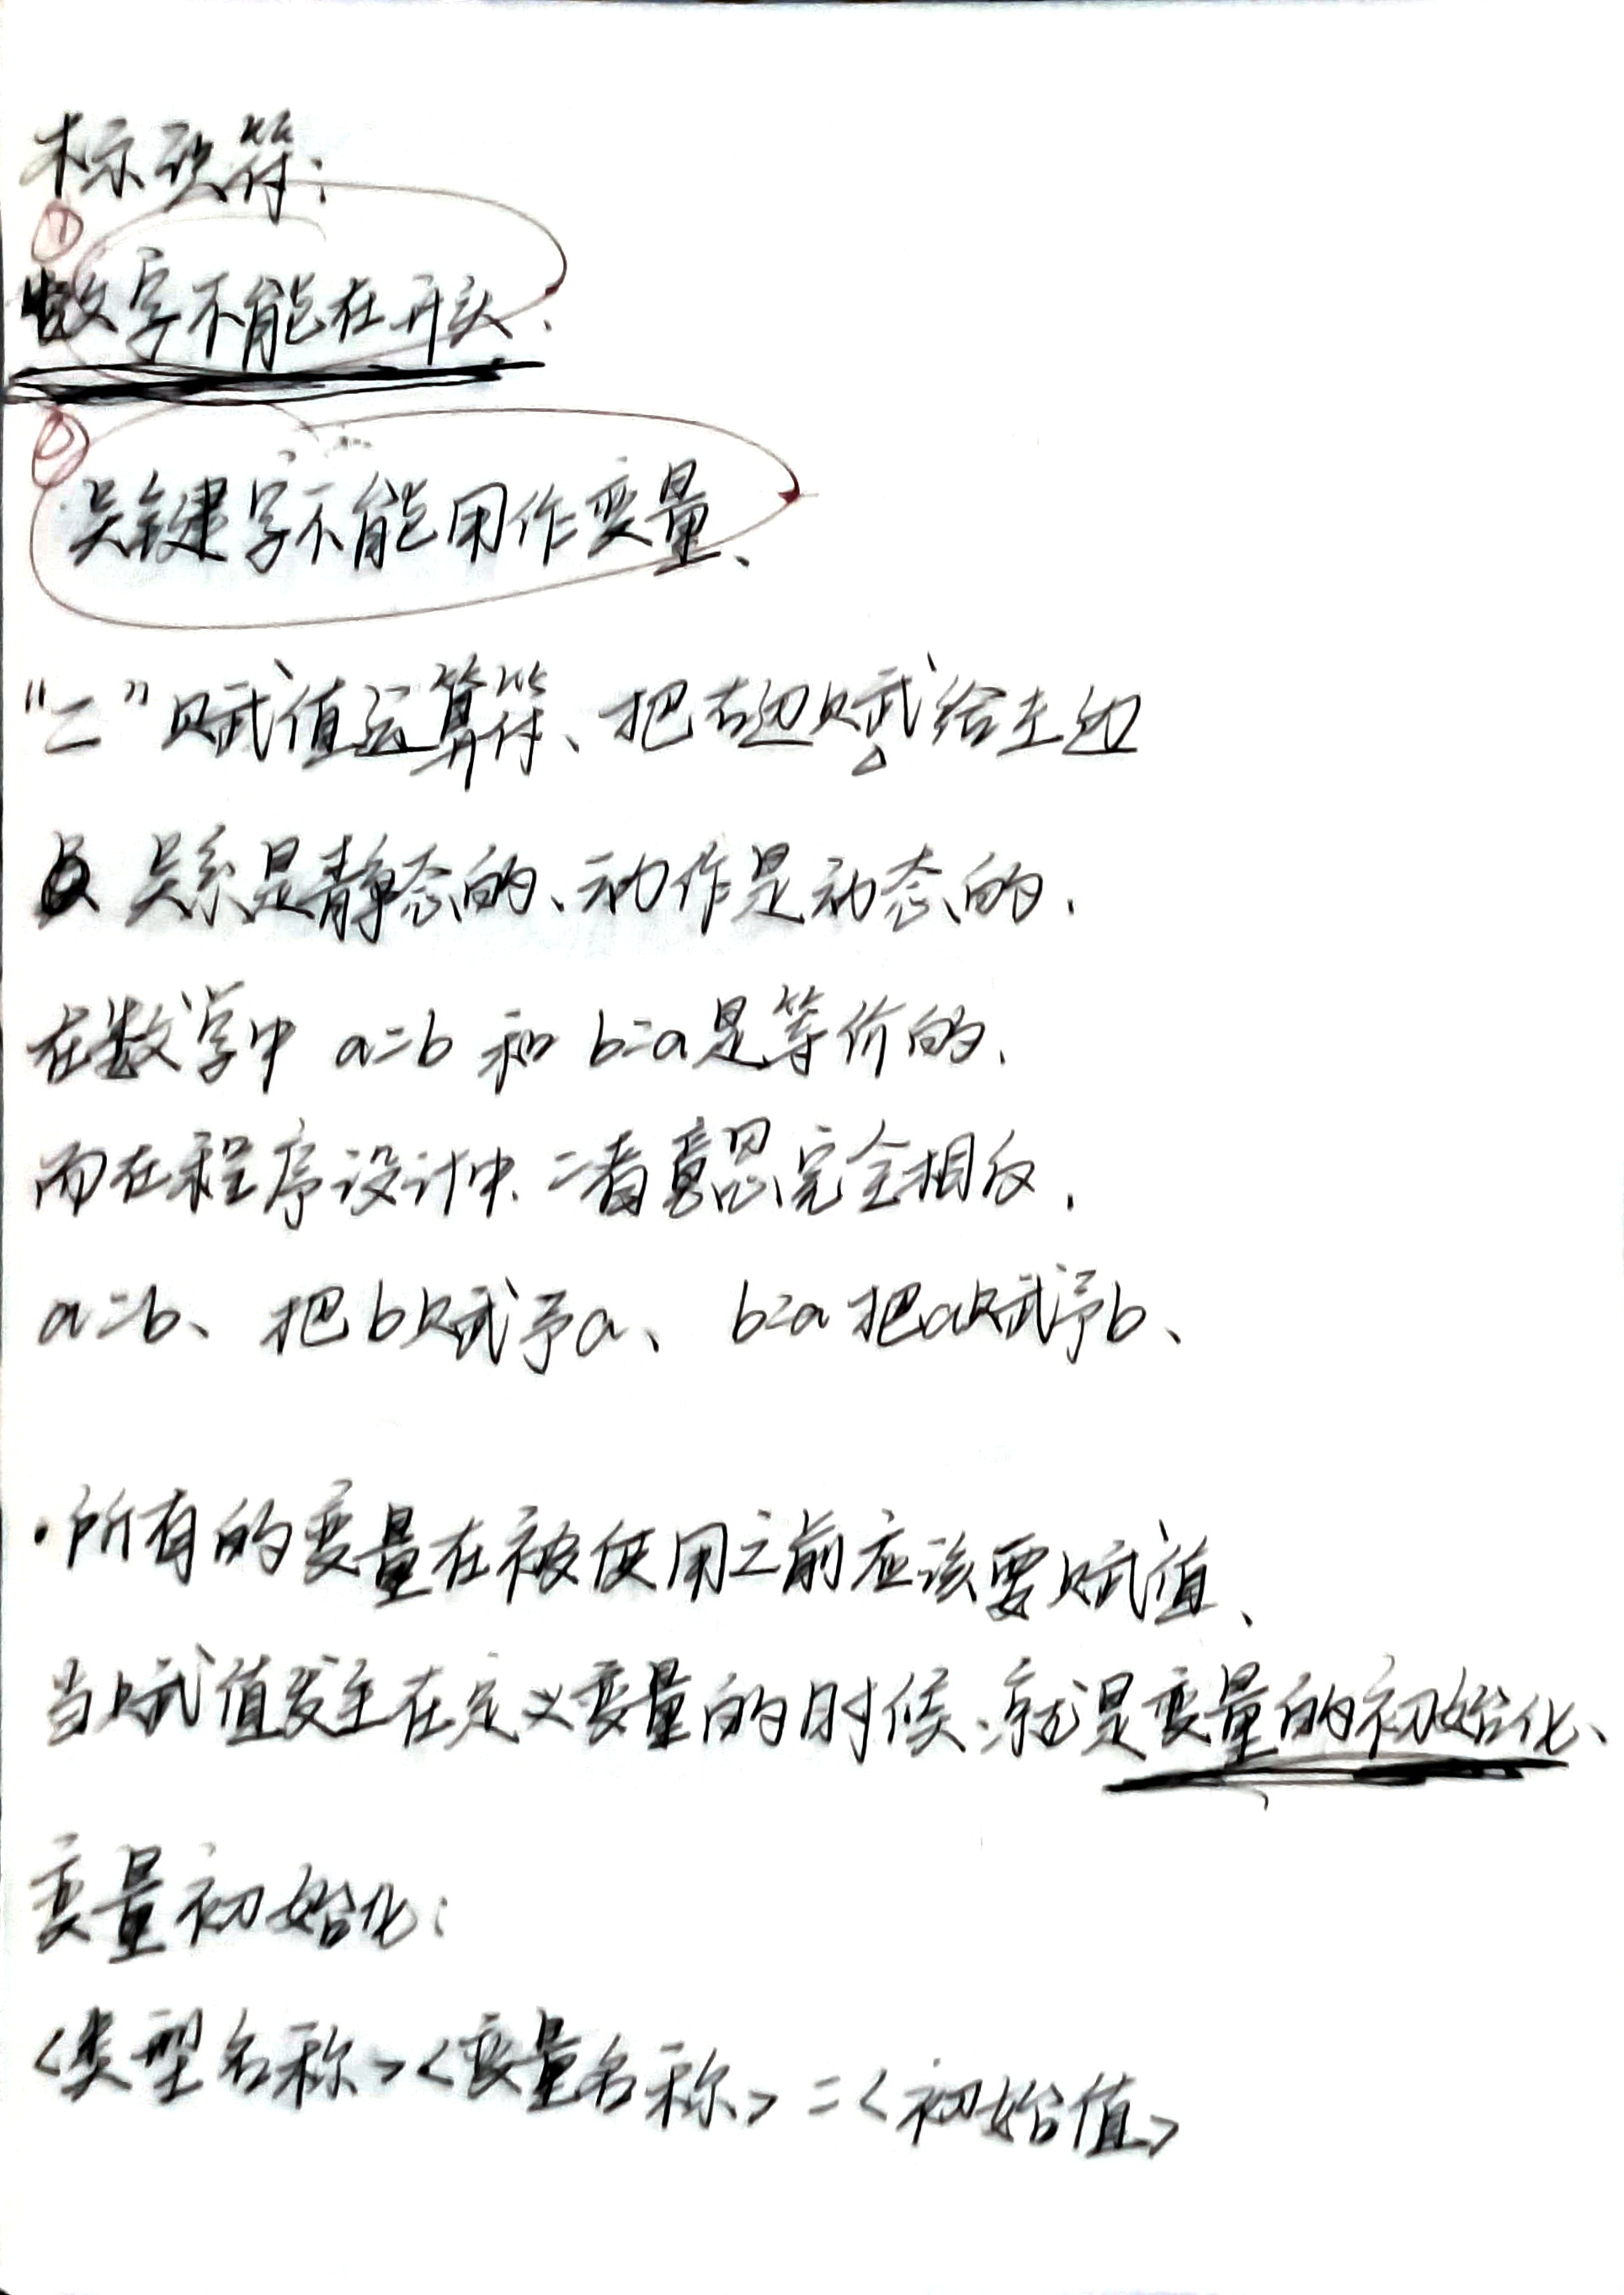 标识符:
①
数字不能在开头.
②
关键字不能用作变量、
"="赋值运算符、把右边赋给左边
关系是静态的、动作是动态的.
在数学中 a=b 和 b=a是等价的.
而在程序设计中、二者意思完全相反.
a=b、把b赋予a、 b=a把a赋予b、
·所有的变量在被使用之前应该要赋值、
当赋值发生在定义变量的时候、就是变量的初始化、
变量初始化:
<类型名称><变量名称>=<初始值>